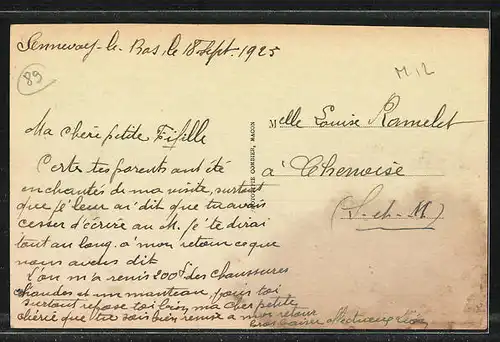 Sennevoy-le-Bas, le 18 Sept. 1925
89
M 12
Ma chère petite Fifille
Certe tes parents ont été
enchantés de ma visite, surtout
que je leur ai dit que tu avais
cesser d'écrire au M. je te dirai
tout au long à mon retour ce que
nous avons dit
L'on m'a remis 200f des chaussures
chaudes et un manteau, pour toi
surtout repose toi bien, ma chère petite
chérie que tu sois bien remise a mon retour
gros baiser
COMBIER, MACON
Melle Louise Ramelet
à Chenoise
(S-et-M)